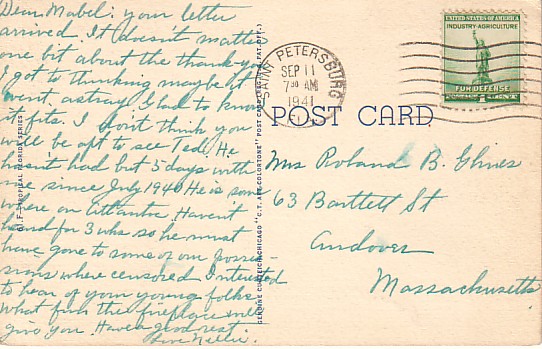 Dear Mabel: your letter
arrived. It doesn't matter
one bit about the thank-you
I got to thinking maybe it
went astray. Glad to know
it fits. I don't think you
will be apt to see Ted. He
hasn't had but 5 days with
me since July 1940 He is some
where on Atlantic. Haven't
heard for 3 wks so he must
have gone to some of our posses-
sions where censored. Interested
to hear of your young folks
What fun the fireplace will
give you. Have a good rest
Love Nellie.
D.I.F.-TROPICAL FLORIDA SERIES
GENUINE CURTEICH-CHICAGO "C.T. ART-COLORTONE" POST CARD (REG. U.S. PAT. OFF.)
SAINT PETERSBURG
SEP 11
7 30 AM
1941
UNITED STATES OF AMERICA
INDUSTRY-AGRICULTURE
FOR DEFENSE
POST CARD
Mrs Roland B.
63 Bartlett St
Andover
Massachusetts